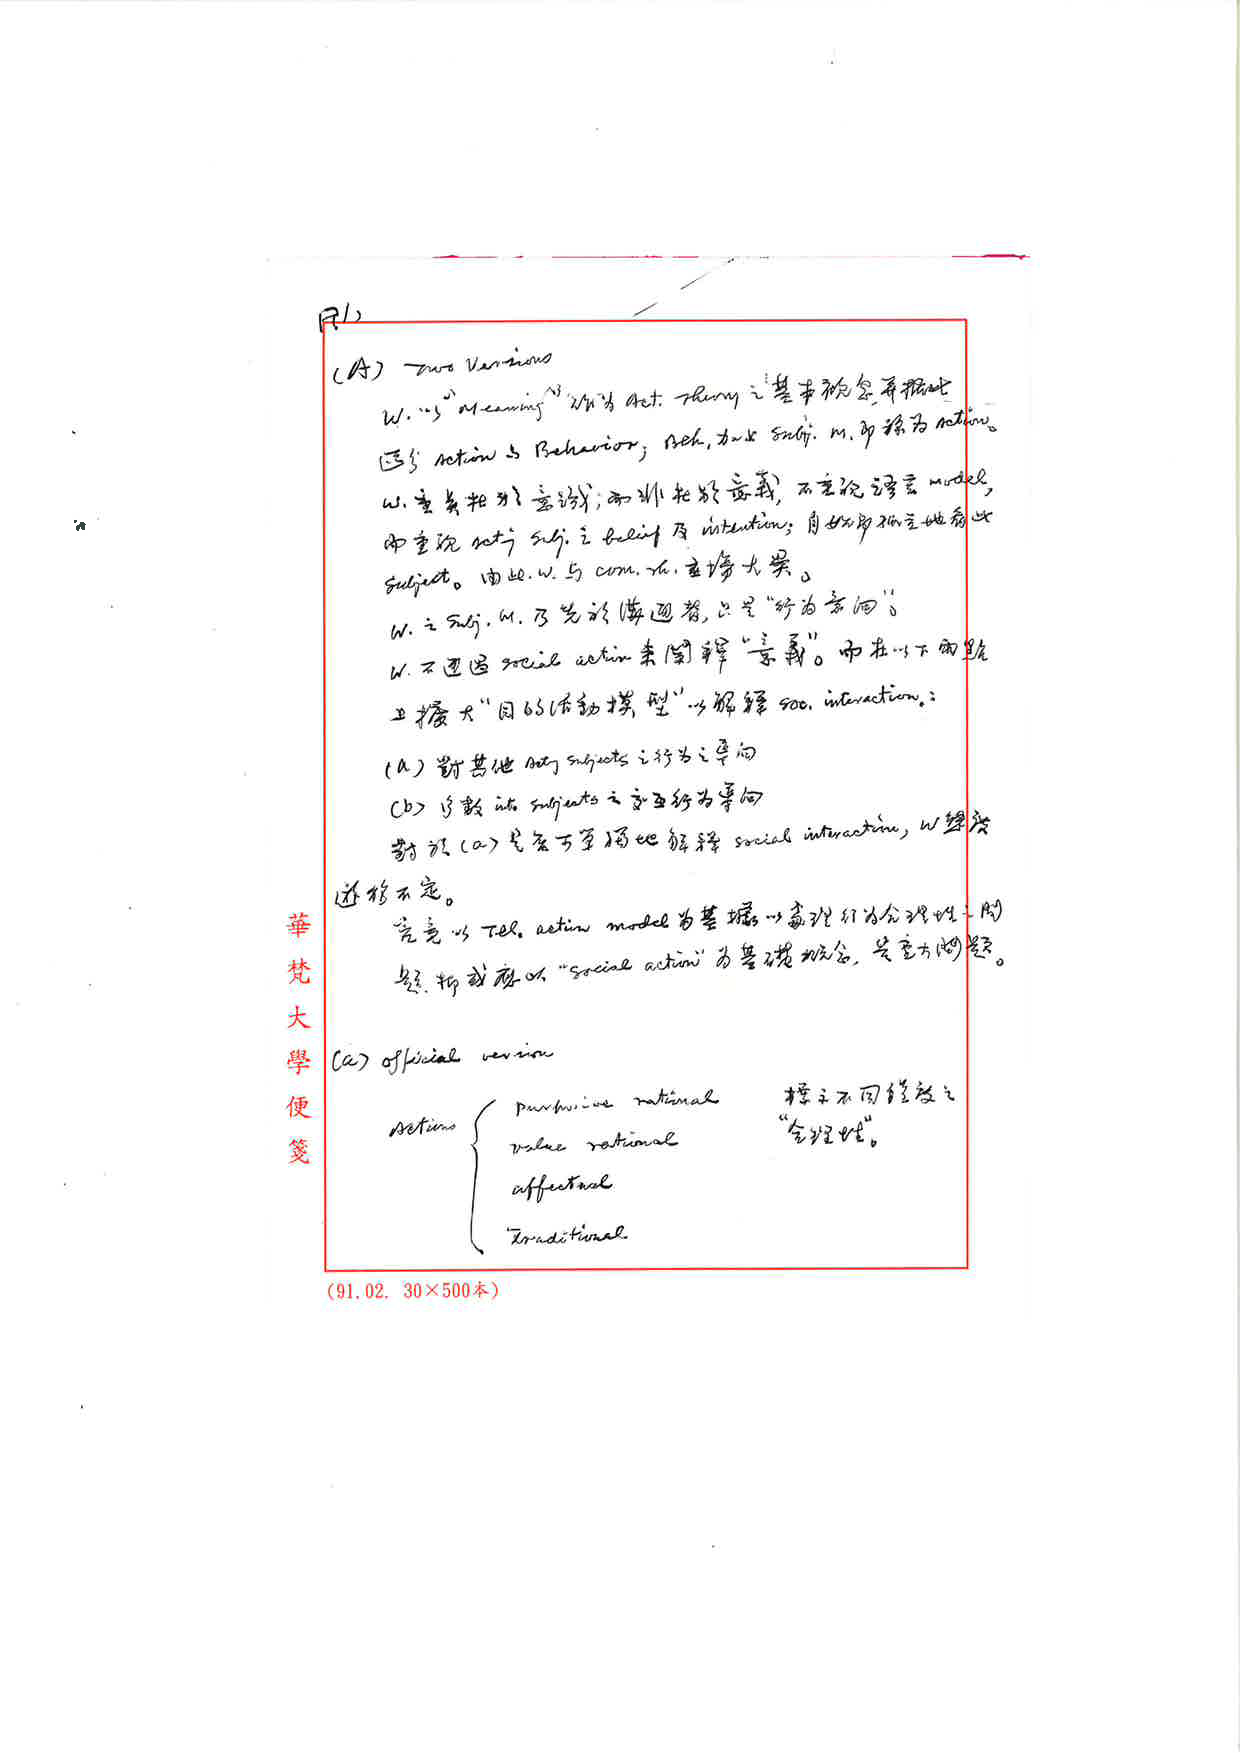 (A) Two Versions
W. 以"Meaning"作為 Act. Theory 之基本概念, 再據此
區分 Action 與 Behavior; Beh. 加上 Subj. M. 即稱為 Action。
W. 重點在於意識; 而非在於意義, 不重視語言 model,
而重視 Act'g Subj. 之 belief 及 intention; 自始即孤立地看此
Subject。由此, W. 與 com. th. 立場大異。
W. 之 Subj. M. 乃先於溝通者, 只是"行為意向"。
W. 不通過 social action 來闡釋"意義"。而在以下兩點
上擴大"目的活動模型"以解釋 soc. interaction.:
(a) 對其他 Act'g Subjects 之行為之導向
(b) 多數 subjects 之交互行為導向
對於(a)是否可單獨地解釋 social interaction, W 態度
游移不定。
究竟以 Tel. action model 為基據以處理行為合理性之問
題, 抑或應以"social action"為基礎概念, 是重大問題。
(a) official version
Actions
purposive rational
value rational
affectual
traditional
標示不同程度之
"合理性"。
華梵大學便箋
(91.02. 30×500本)